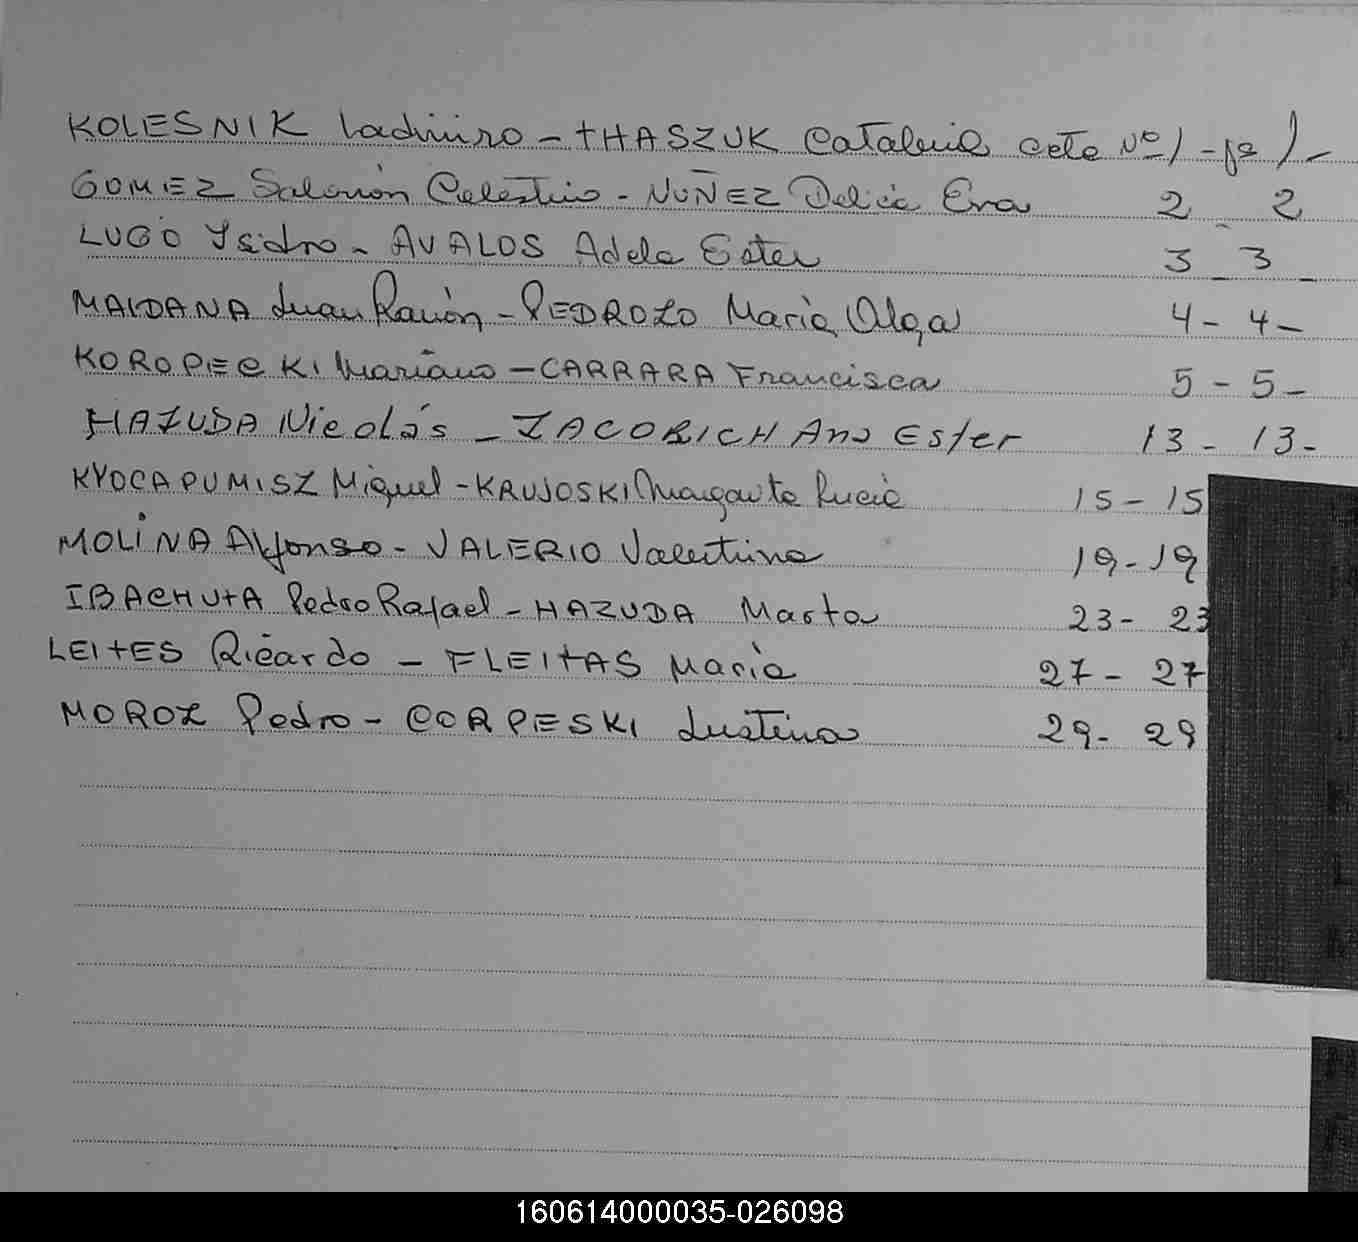 KOLESNIK Ladimiro - THASZUK Catalina acta Nº 1 - fº 1 -
GOMEZ Salomón Celestino - NUÑEZ Delicia Eva 2 2
LUGO Ysidro - AVALOS Adela Ester 3 - 3 -
MAIDANA Juan Ramón - PEDROZO María Olga 4 - 4 -
KOROPECKI Mariano - CARRARA Francisca 5 - 5 -
HAZUDA Nicolás - ZACOBICH Ana Ester 13 - 13 -
KYOCAPUMISZ Miguel - KRUJOSKI Margarita Lucia 15 - 15
MOLINA Alfonso - VALERIO Valentina 19 - 19
IBACHUTA Pedro Rafael - HAZUDA Marta 23 - 23
LEITES Ricardo - FLEITAS María 27 - 27
MOROZ Pedro - CORPESKI Justina 29 - 29
160614000035-026098